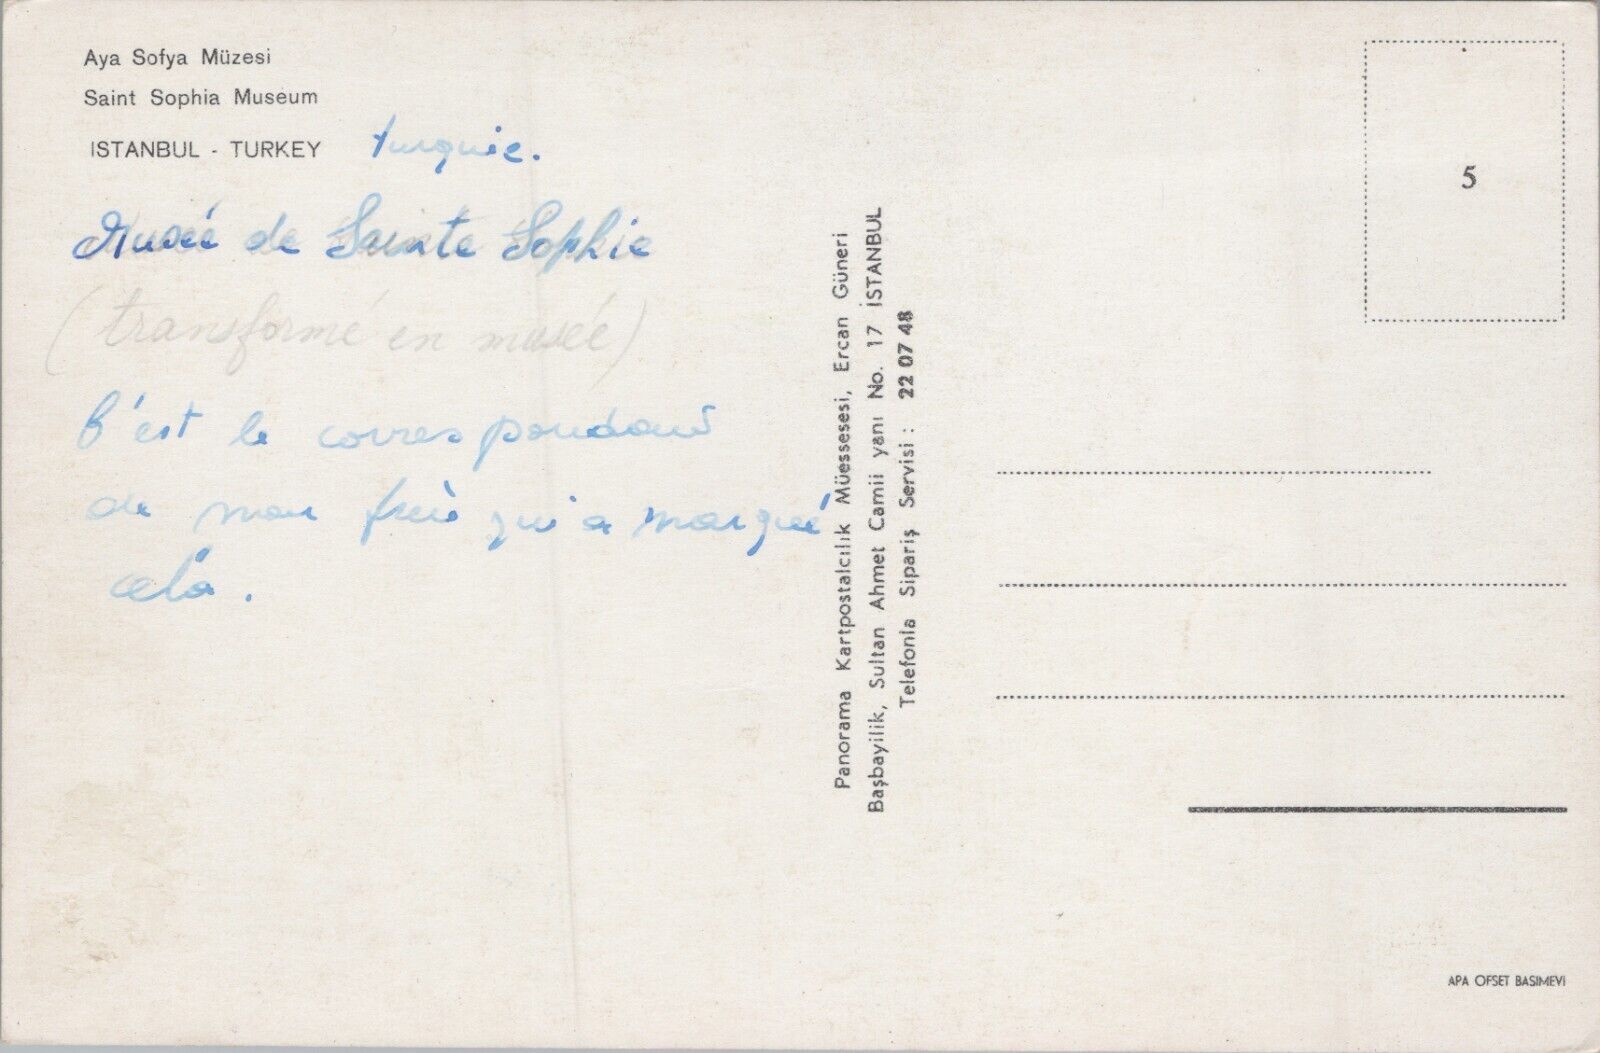 Aya Sofya Müzesi
Saint Sophia Museum
ISTANBUL - TURKEY turquie.
Musée de Sainte Sophie
(transformé en musée)
C'est le correspondant
de mon frère qui a marqué
cela.
Panorama Kartpostalcılık Müessesesi, Ercan Güneri
Başbayilik, Sultan Ahmet Camii yanı No. 17 İSTANBUL
Telefonla Sipariş Servisi : 22 07 48
5
APA OFSET BASIMEVI